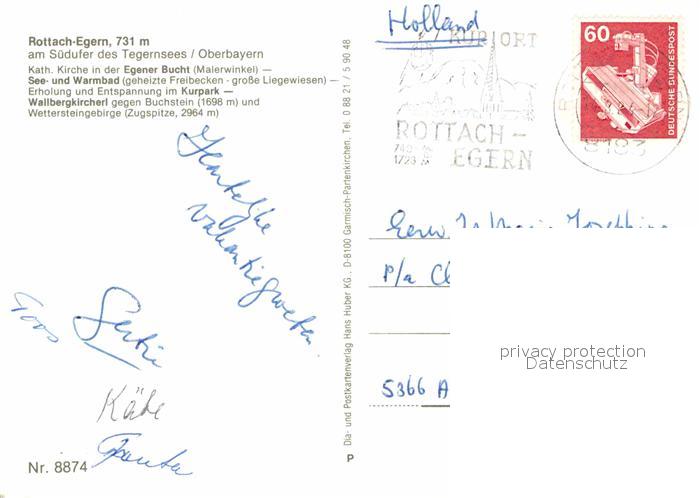 Rottach-Egern, 731 m
am Südufer des Tegernsees / Oberbayern
Kath. Kirche in der Egener Bucht (Malerwinkel) —
See- und Warmbad (geheizte Freibecken - große Liegewiesen) —
Erholung und Entspannung im Kurpark —
Wallbergkircherl gegen Buchstein (1698 m) und
Wettersteingebirge (Zugspitze, 2964 m)
Hartelijke
vakantiegroeten
Käthe
Nr. 8874
Dia- und Postkartenverlag Hans Huber KG., D-8100 Garmisch-Partenkirchen, Tel. 0 88 21 / 5 90 48
P
Holland
KURORT
ROTTACH-
EGERN
60
DEUTSCHE BUNDESPOST
8183
P/a
5366 A
privacy protection
Datenschutz